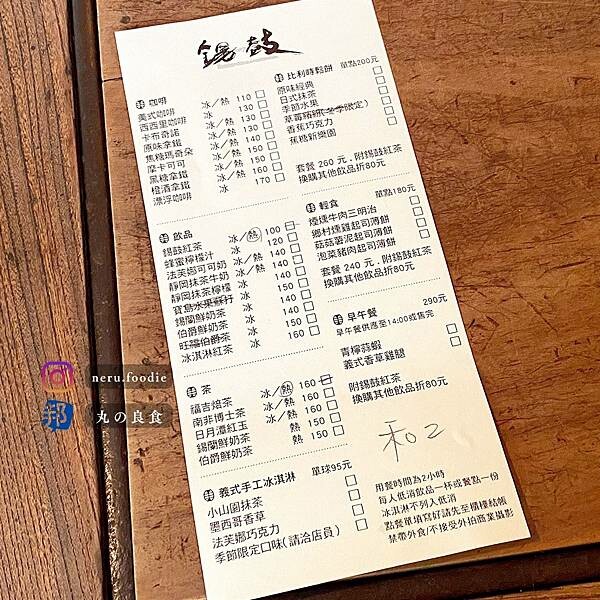 錫鼓
咖啡
美式咖啡 冰／熱 110
西西里咖啡 冰 130
卡布奇諾 冰／熱 130
原味拿鐵 冰／熱 130
焦糖瑪奇朵 冰／熱 150
摩卡可可 冰／熱 150
黑糖拿鐵 冰／熱 150
橙酒拿鐵 冰／熱 160
漂浮咖啡 冰 170
飲品
錫鼓紅茶 冰／熱 100
蜂蜜檸檬汁 冰 120
法芙娜可可奶 冰／熱
靜岡抹茶牛奶 冰／熱
靜岡抹茶檸檬 冰 140
寶島水果蘇打 冰 140
錫蘭鮮奶茶 冰 140
伯爵鮮奶茶 冰 140
旺福伯爵茶 冰 150
冰淇淋紅茶 冰 160
茶
福吉焙茶 冰／熱 160
南非博士茶 冰／熱 160
日月潭紅玉 冰／熱 160
錫蘭鮮奶茶 熱 150
伯爵鮮奶茶 熱 150
義式手工冰淇淋 單球95元
小山園抹茶
墨西哥香草
法芙娜巧克力
季節限定口味(請洽店員)
比利時鬆餅 單點200元
原味經典
日式抹茶
季節水果
草莓繽紛(冬季限定)
香蕉巧克力
蕉糖新樂園
套餐 260 元，附錫鼓紅茶
換購其他飲品折80元
輕食 單點180元
煙燻牛肉三明治
鄉村燻雞起司薄餅
菇菇薯泥起司薄餅
泡菜豬肉起司薄餅
套餐 240 元，附錫鼓紅茶
換購其他飲品折80元
早午餐 290元
早午餐供應至14:00或售完
青檸蒜蝦
義式香草雞腿
附錫鼓紅茶
換購其他飲品折80元
和2
用餐時間為2小時
每人低消飲品一杯或餐點一份
冰淇淋不列入低消
點餐單填寫好請先至櫃檯結帳
禁帶外食/不接受外拍商業攝影
neru.foodie
邦 丸の良食